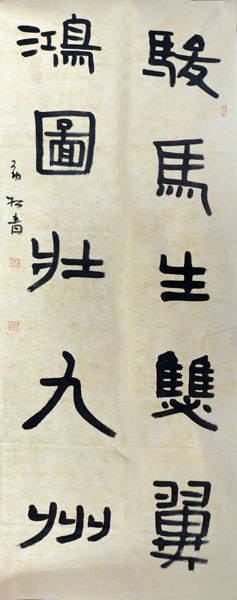 駿馬生雙翼
鴻圖壯九州
松青